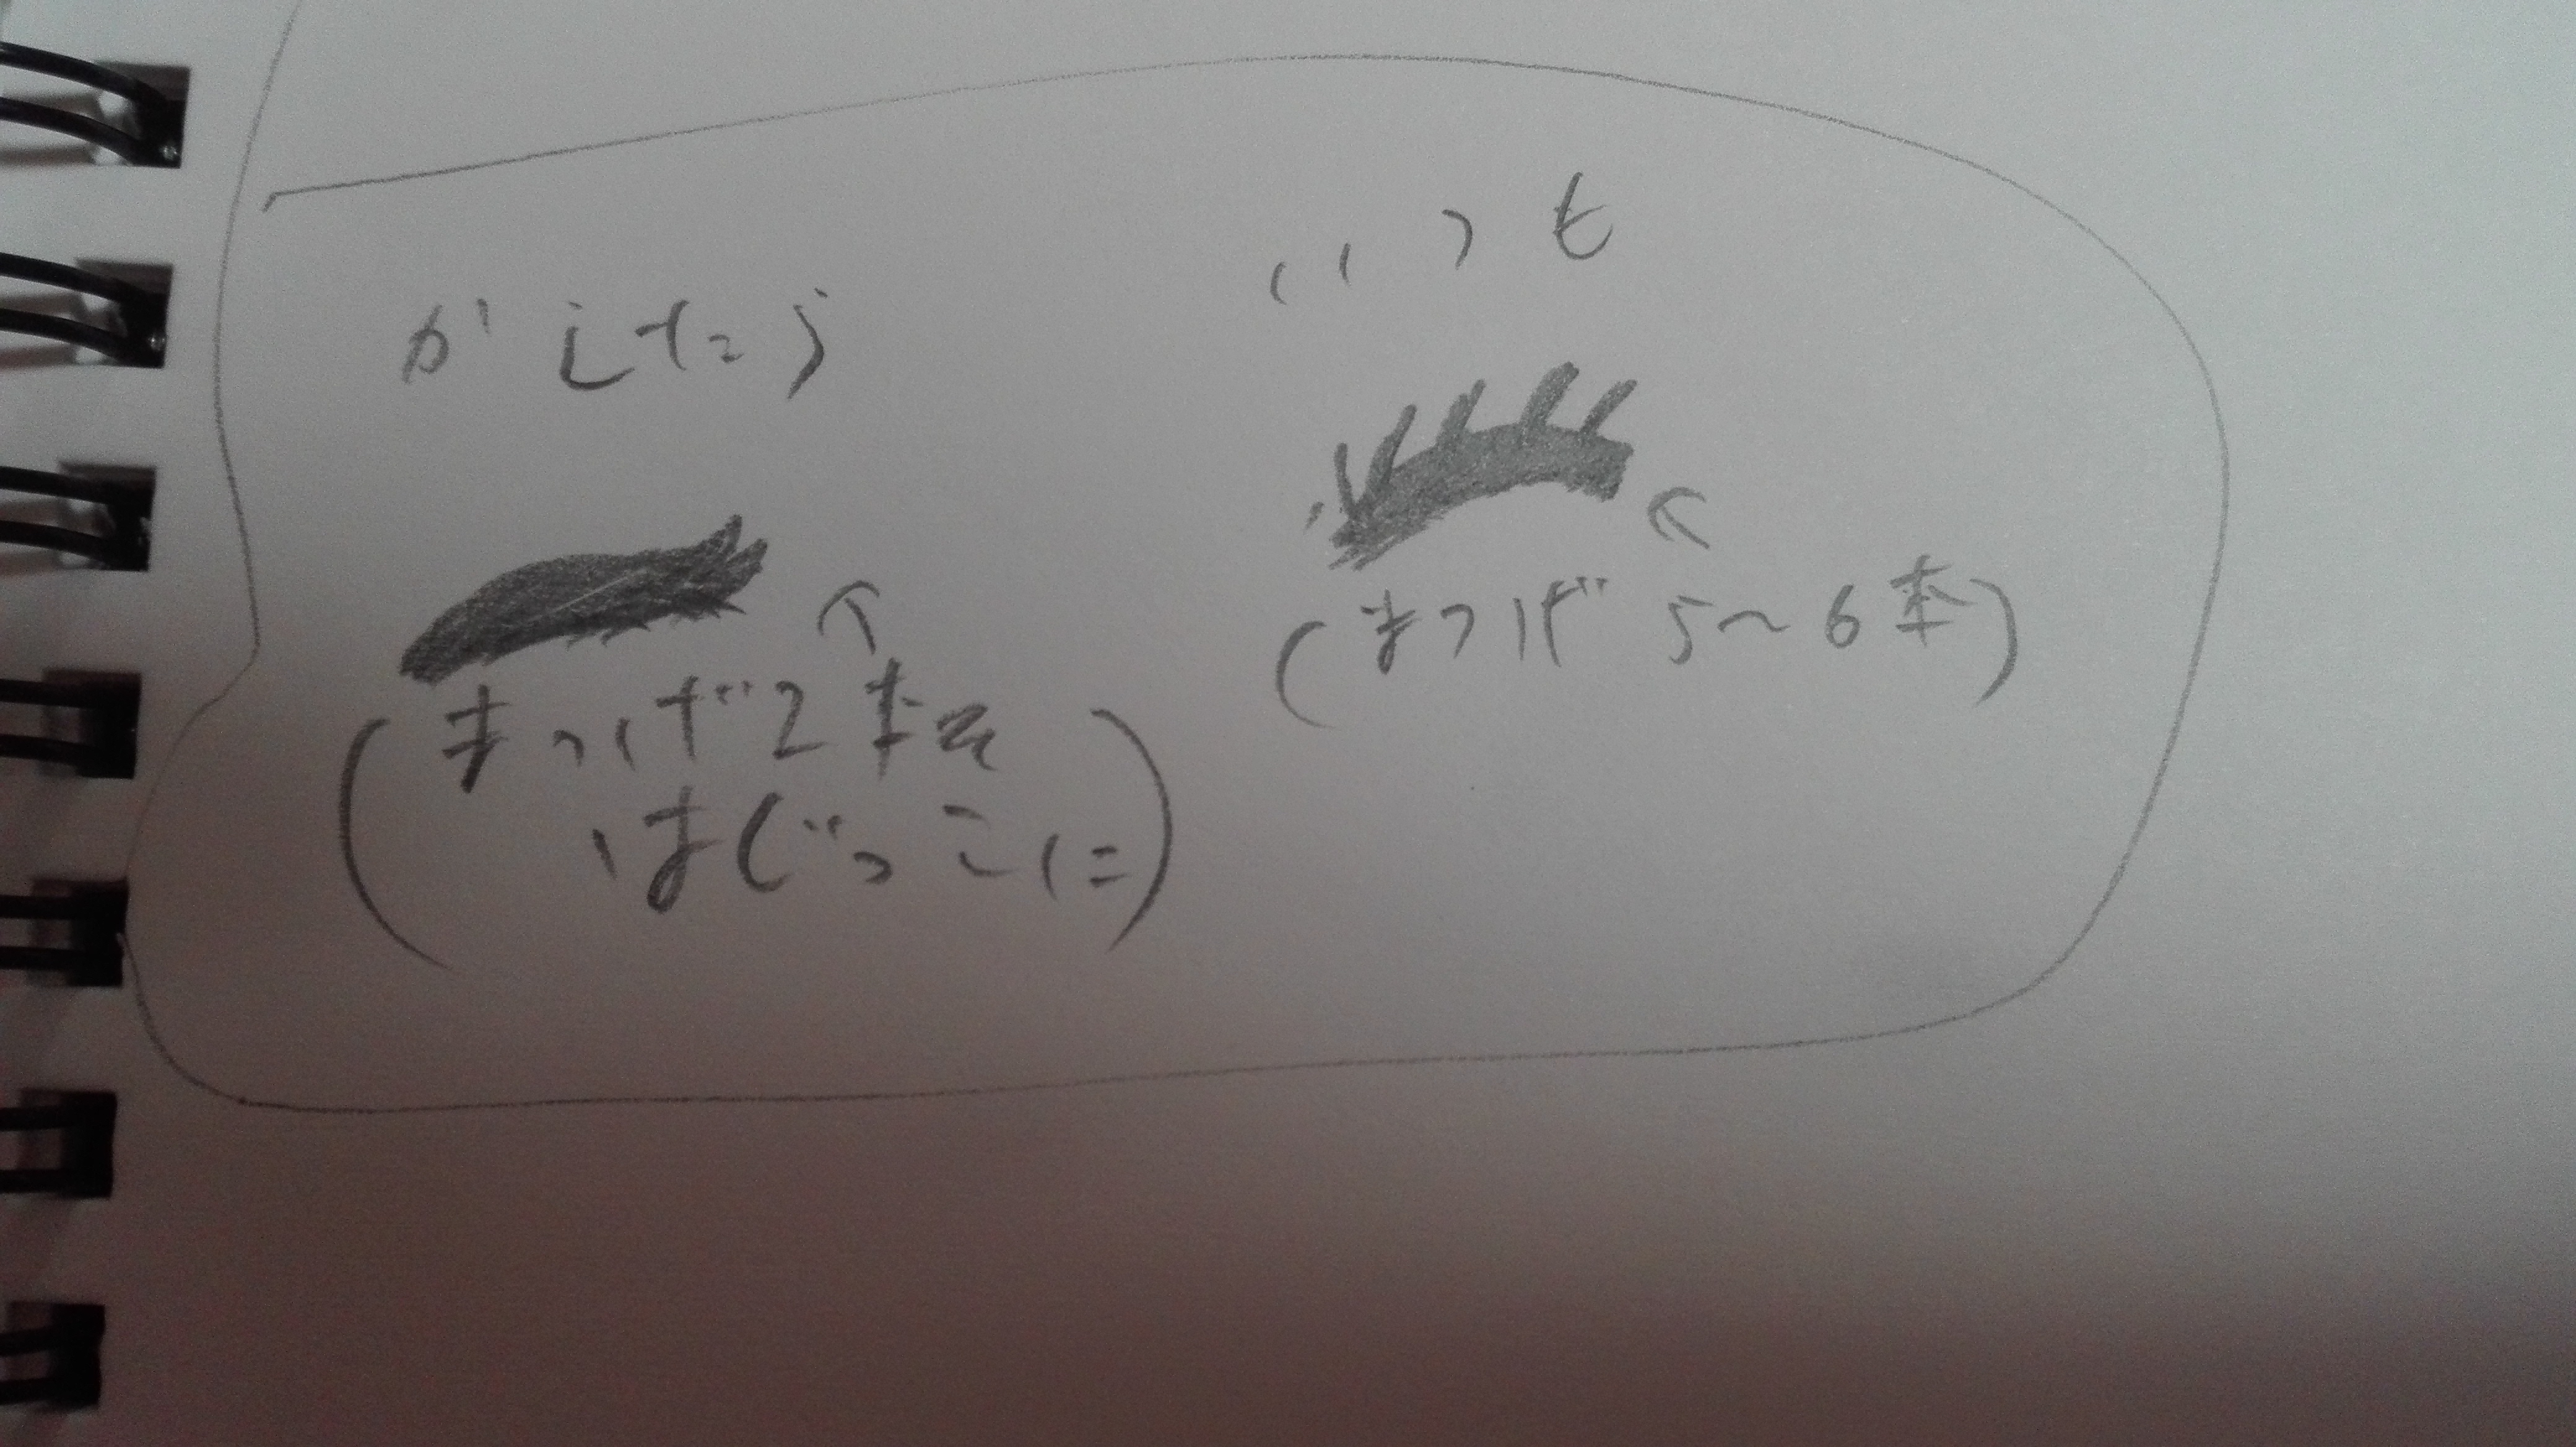 いつも
(まつげ 5〜6本)
(まつげ2本を
はじっこに)